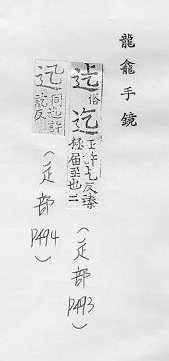 龍龕手鏡
俗迄正許乞反臻
極届至也二
(辵部 P493)
迄同上許
訖反
(辵部 P494)